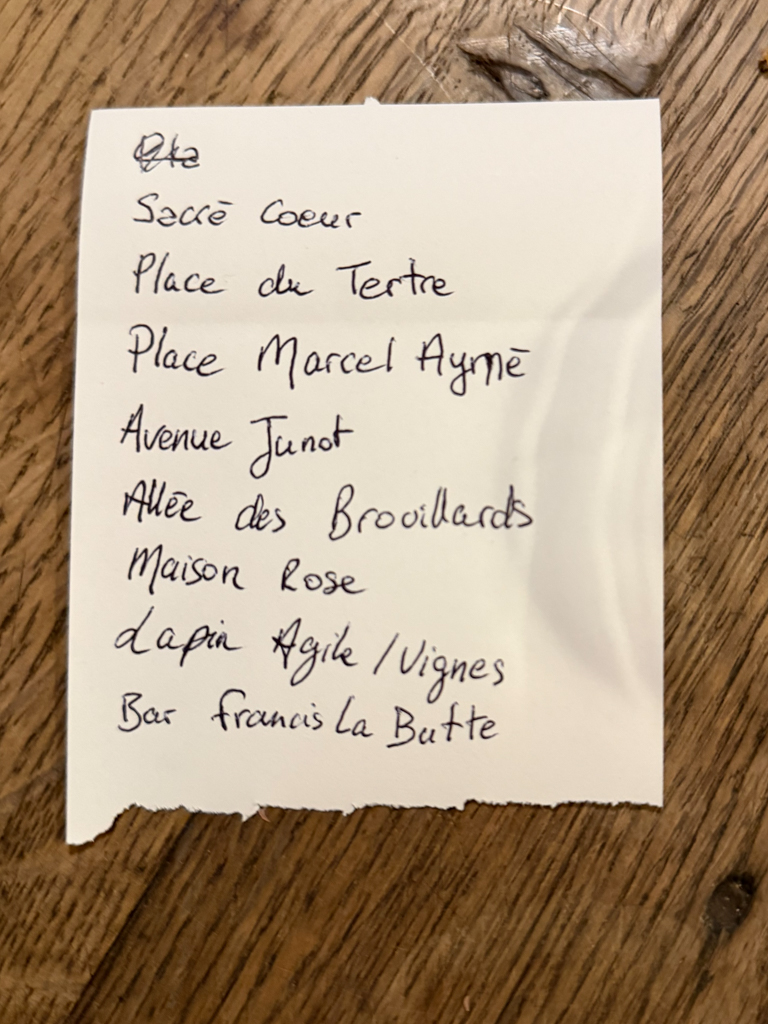 Sacré Coeur
Place du Tertre
Place Marcel Aymé
Avenue Junot
Allée des Brouillards
Maison Rose
Lapin Agile / Vignes
Bar Francis La Butte